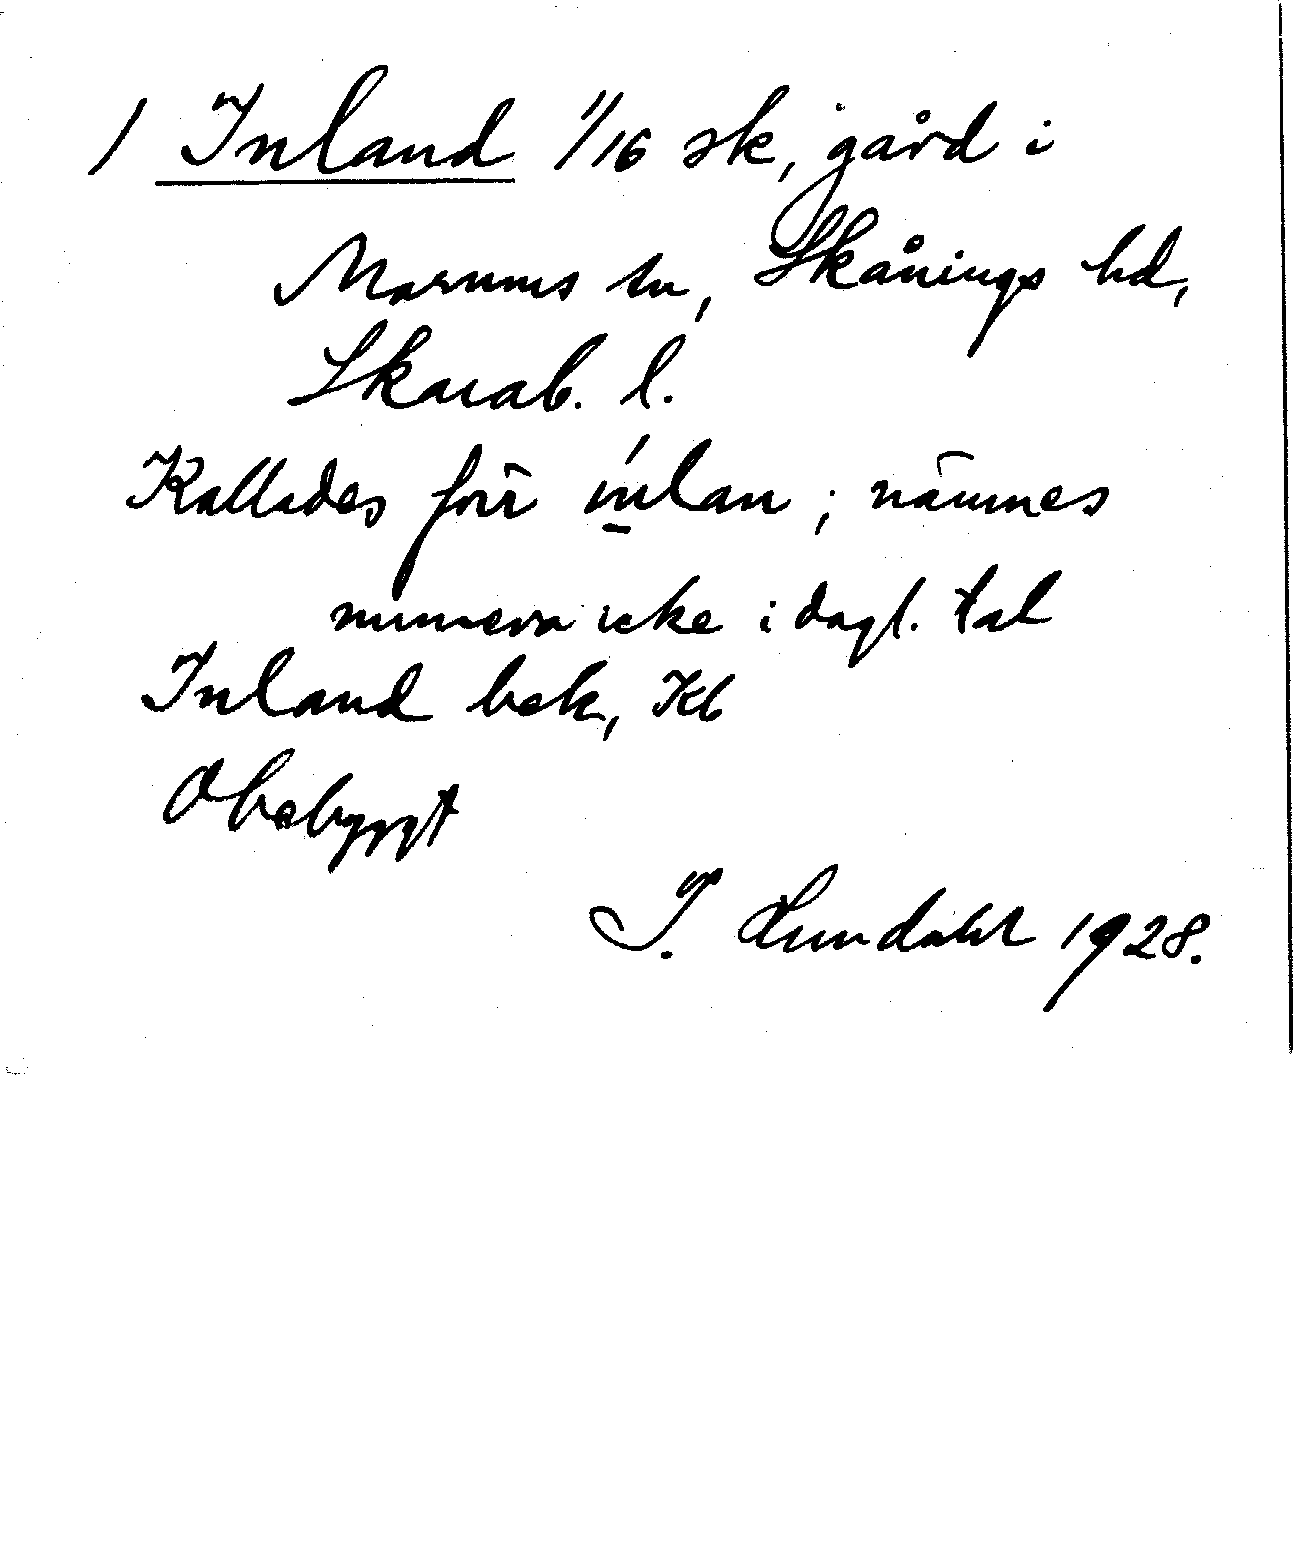 / Inland 1/16 sk, gård i
Marums sn, Skånings hd,
Skarab. l.
Kallades förr í̱nlan; nämnes
numera icke i dagl. tal
Inland bek, Kb
Obebyggt
I. Lundahl 1928.